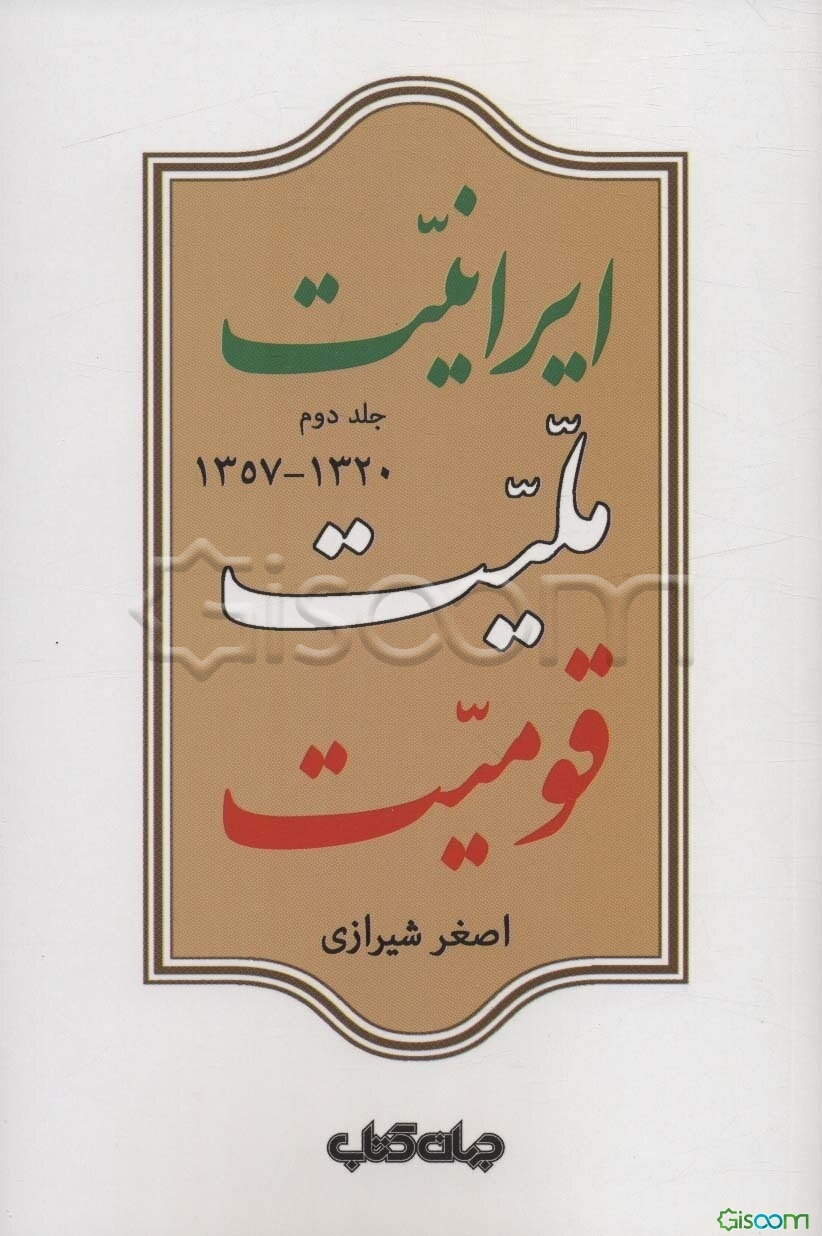 ایرانیّت
جلد دوم
۱۳۲۰-۱۳۵۷
ملّیّت
قومیّت
اصغر شیرازی
جهان کتاب
Gisoom
Gisoom